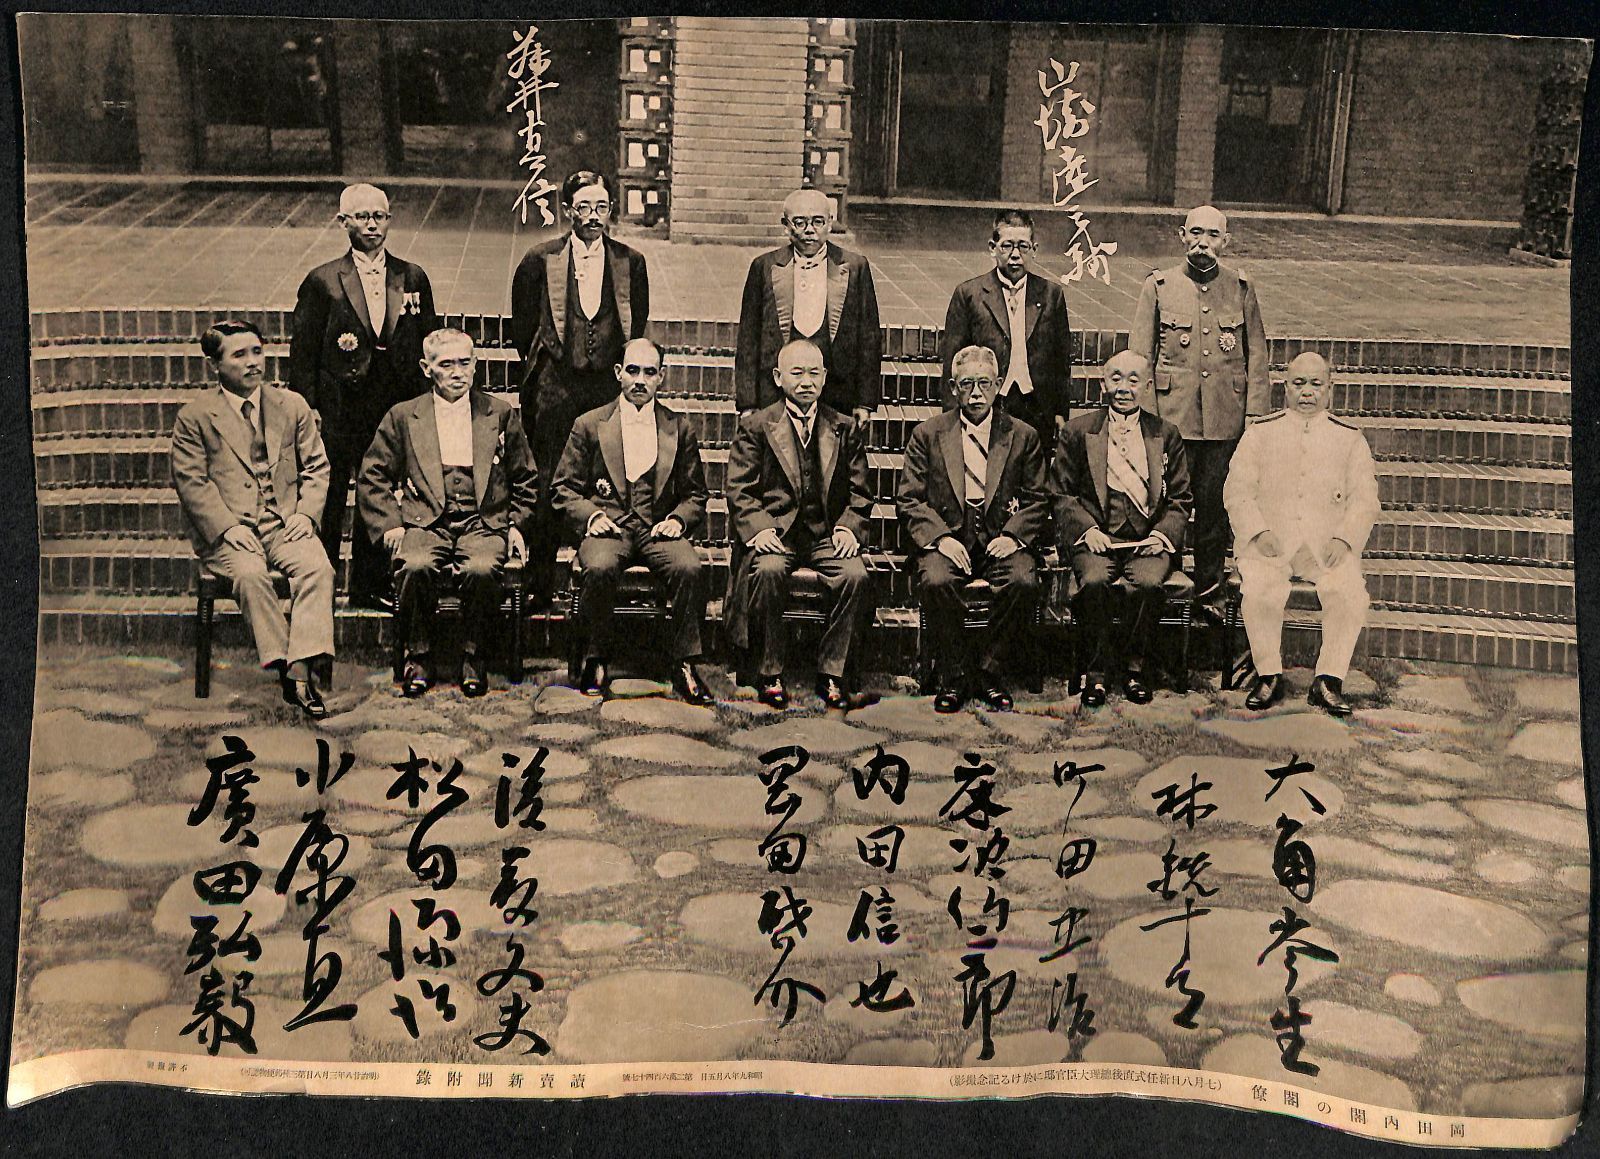 山崎達之輔
藤井真信
大角岑生
林銑十郎
町田忠治
床次竹二郎
内田信也
岡田啓介
後藤文夫
松田源治
小原直
廣田弘毅
岡田内閣の閣僚 (七月八日新任式直後總理大臣官邸に於ける記念撮影) 昭和九年八月五日 第二萬六百四十七號 讀賣新聞附錄 (明治廿八年三月八日第三種郵便物認可) 不許複製